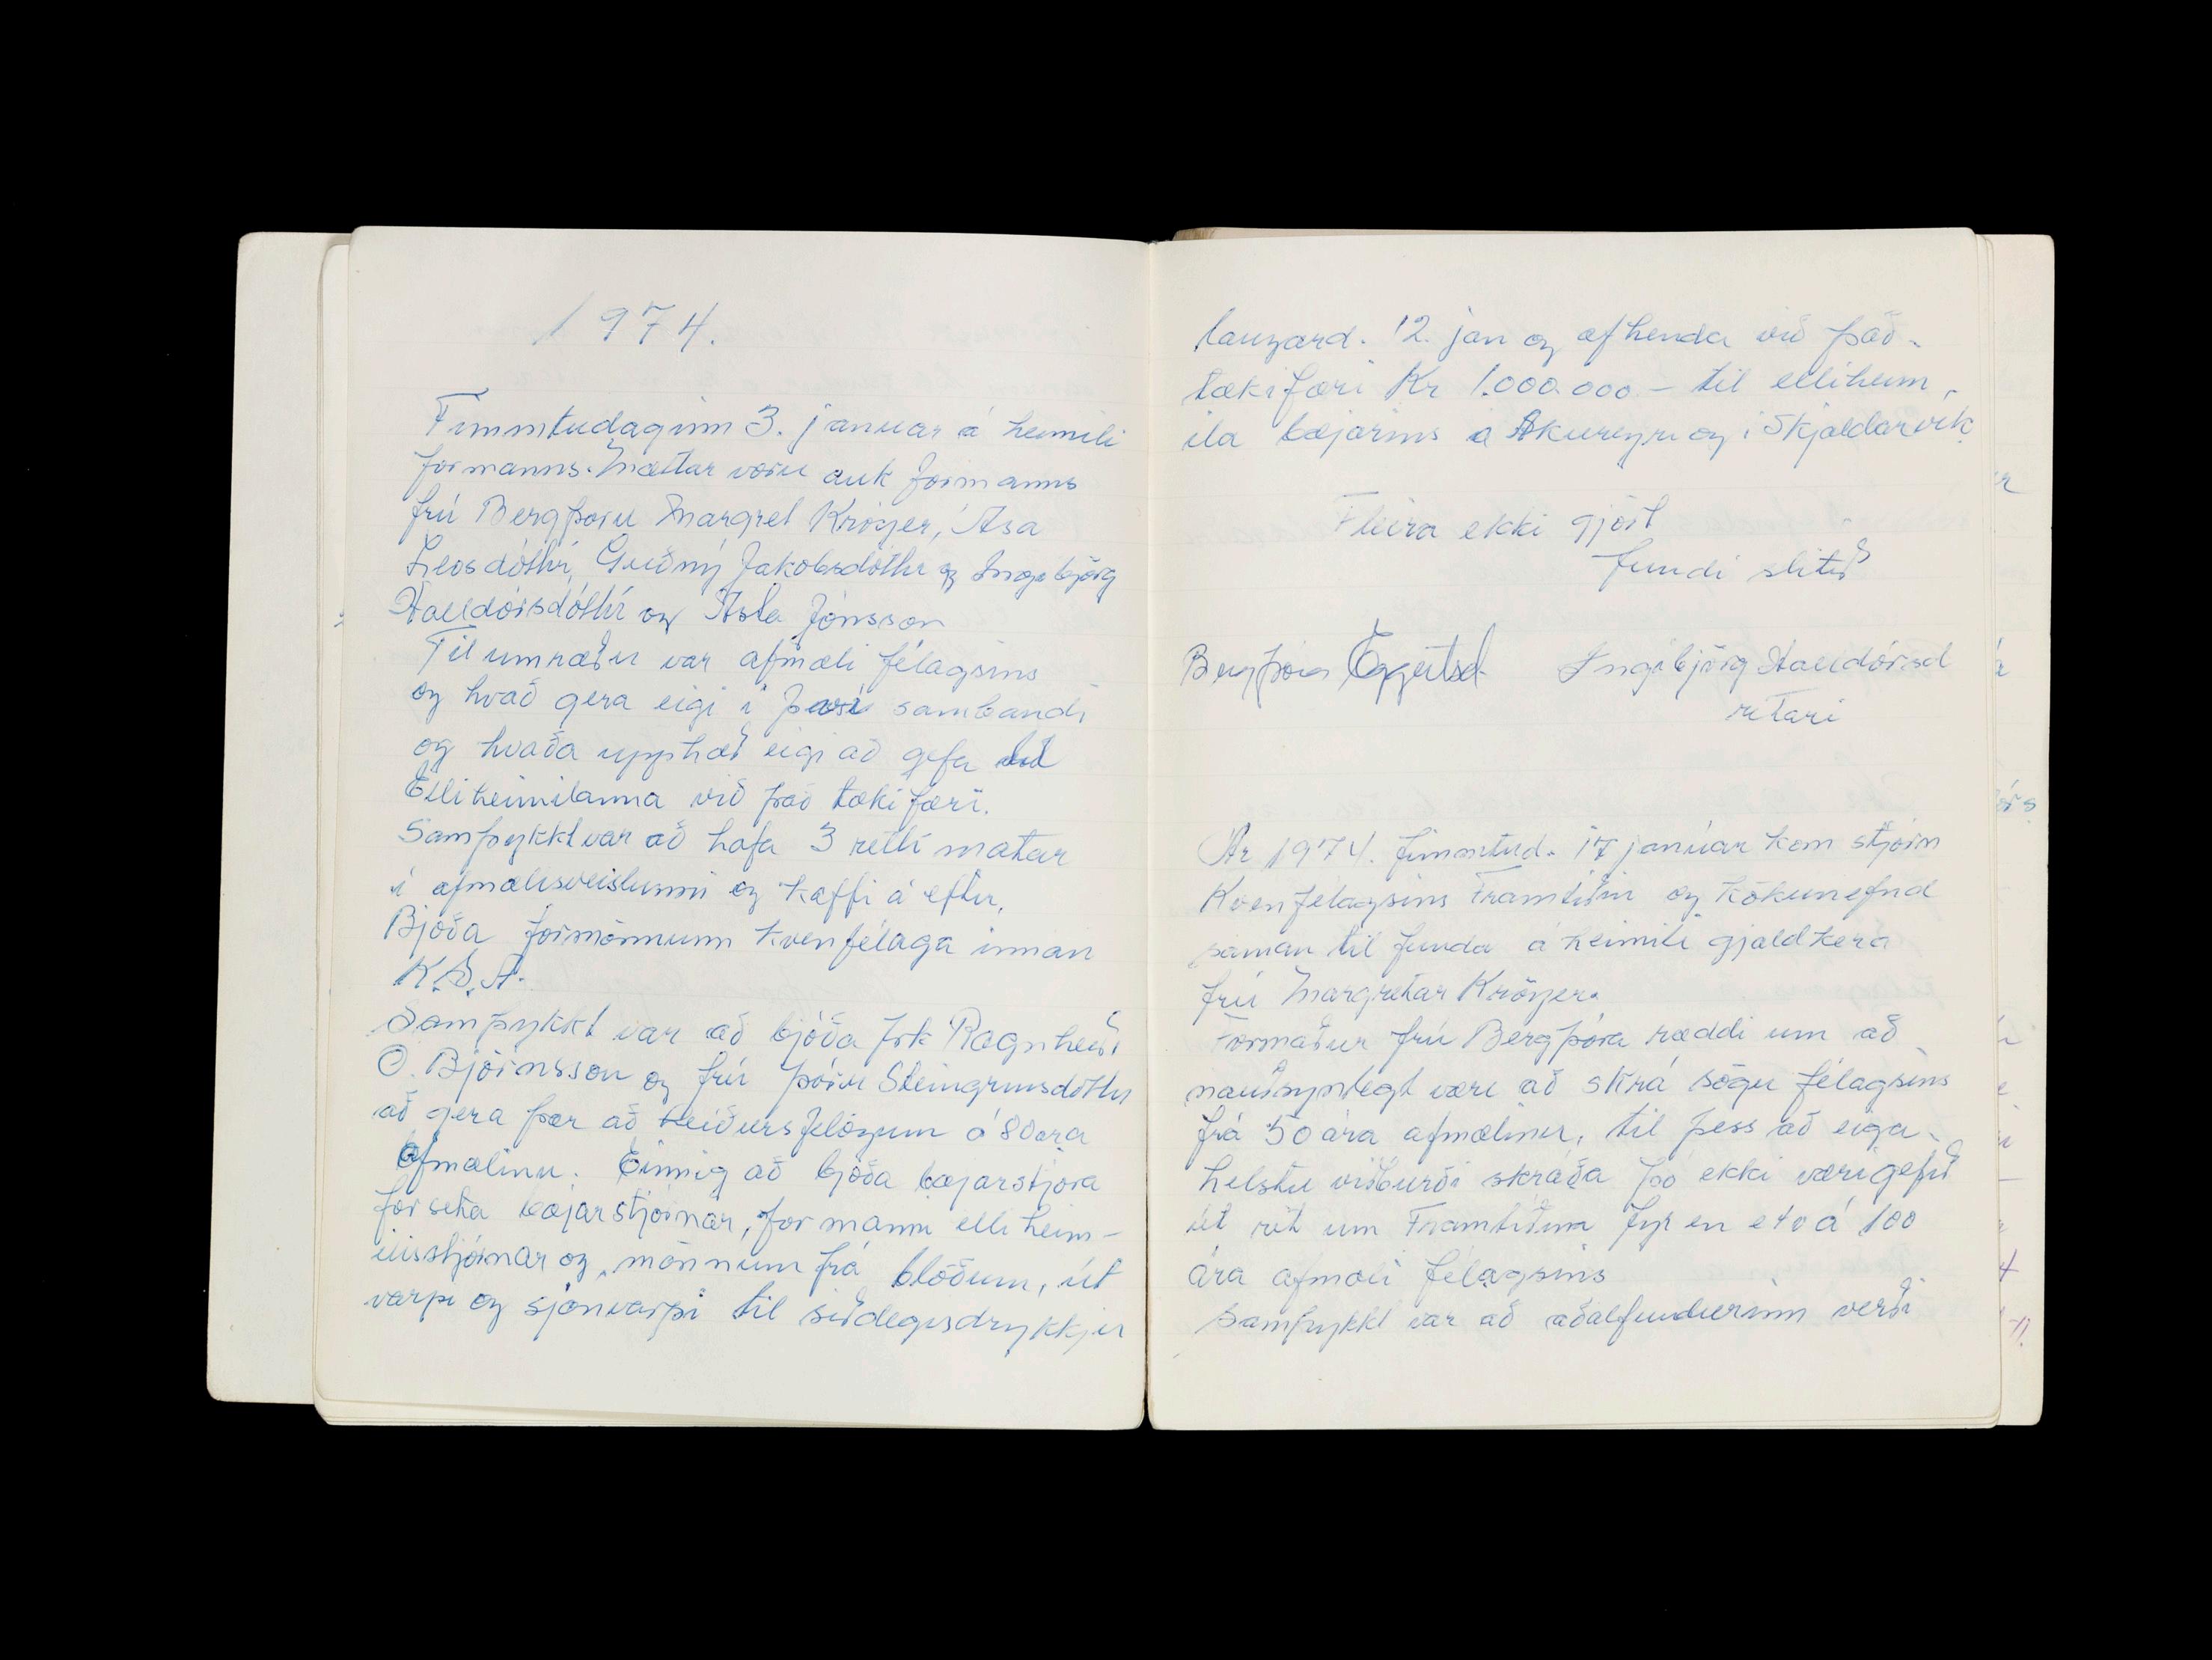 1974.
Fimmtudaginn 3. januar á heimili
formanns. Mættar voru auk formanns
frú Bergþóru Margret Kröyer, Ása
Leosdóttir, Guðný Jakobsdóttir og Ingibjörg
Halldórsdóttir og Ásta Jónsson
Til umræðu var afmæli félagsins
og hvað gera eigi i því sambandi
og hvaða upphæð eigi að gefa til
Elliheimilanna við það tækifæri.
Samþykkt var að hafa 3 retti matar
i afmælisveislunni og kaffi á eftir.
Bjóða formönnum kvenfélaga innan
K.S.A.
Samþykkt var að bjóða frk Ragnheiði
O. Björnsson og frú Þóru Steingrimsdóttur
að gera þær að heiðursfélögum á 80 ára
afmælinu. Einnig að bjóða bæjarstjóra
forseta bæjarstjórnar, formanni elliheim-
ilisstjórnar og mönnum frá blöðum, út
varpi og sjónvarpi til síðdegisdrykkju
laugard. 12. jan og afhenda við það
tækifæri Kr 1.000.000 - til elliheim-
ila bæjarins á Akureyri og i Skjaldarvík
Fleira ekki gjört
fundi slitið
Bergþóra Eggertsd Ingibjörg Halldórsd
ritari
Ár 1974. fimmtud. 17 janúar kom stjórn
Kvenfélagsins Framtíðin og kökunefnd
saman til funda á heimili gjaldkera
frú Margrétar Kröyer.
Formaður frú Bergþóra ræddi um að
nauðsynlegt væri að skrá sögu félagsins
frá 50 ára afmælinu, til þess að eiga
helstu viðburði skráða þó ekki væri gefið
út rit um Framtíðina fyr en etv á 100
ára afmæli félagsins
Samþykkt var að aðalfundurinn verði